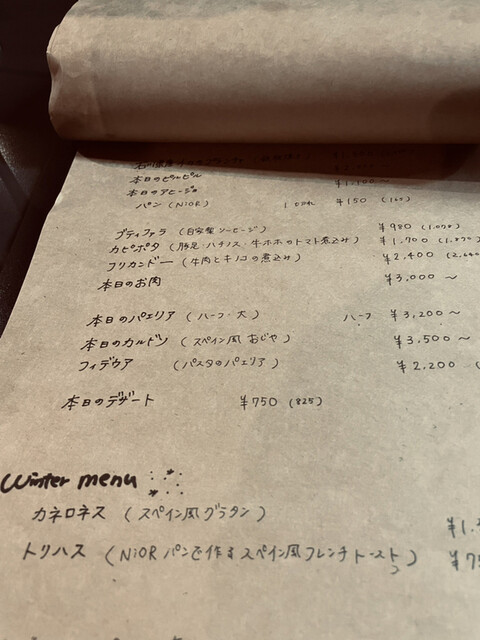 本日のピルピル
本日のアヒージョ
パン (NiOR) 1 ¥150 (165)
ブティファラ (自家製ソーセージ) ¥980 (1,078)
カピポタ (豚足・ハチノス・牛ホホのトマト煮込み) ¥1,700 (1,870)
フリカンドー (牛肉とキノコの煮込み) ¥2,400 (2,640
本日のお肉 ¥3,000 ～
本日のパエリア (ハーフ・大) ハーフ ¥3,200 ～
本日のカルドソ (スペイン風 おじや) ¥3,500 ～
フィデウア (パスタのパエリア) ¥2,200 (
本日のデザート ¥750 (825)
Winter menu
カネロネス (スペイン風グラタン) ¥1.
トリハス (NiOR パンで作るスペイン風フレンチトースト) ¥75